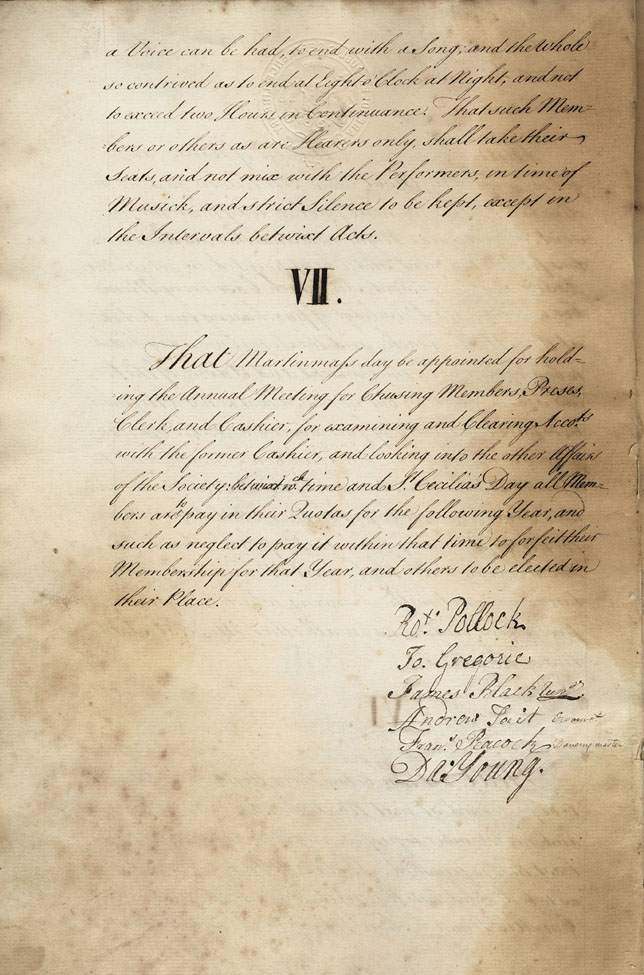 a Voice can be had, to end with a Song; and the Whole
so contrived as to end at Eight o'Clock at Night, and not
to exceed two Hours in Continuance. That such Mem-
bers or others as are Hearers only, shall take their
Seats, and not mix with the Performers, in time of
Musick, and strict Silence to be kept, except in
the Intervals betwixt Acts.
VII.
That Martinmass day be appointed for hold-
ing the Annual Meeting for Chusing Members, Preses,
Clerk, and Cashier, for examining and Clearing Accots.
with the former Cashier, and looking into the other Affairs
of the Society: betwixt wch. time and St. Cecilia's Day all Mem-
bers are to pay in their Quotas for the following Year, and
such as neglect to pay it within that time to forfeit their
Membership for that Year, and others to be elected in
their Place.
Rot. Pollock
Jo. Gregorie
James Black Junr.
Andrew Tait
Frans. Peacock Dancing master
Da: Young.